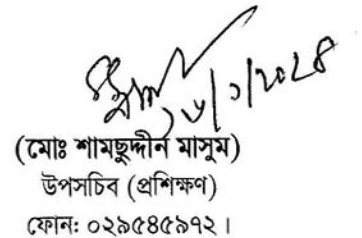 (মোঃ শামছুদ্দীন মাসুম)
উপসচিব (প্রশিক্ষণ)
ফোন: ০২৯৫৪৫৯৭২।